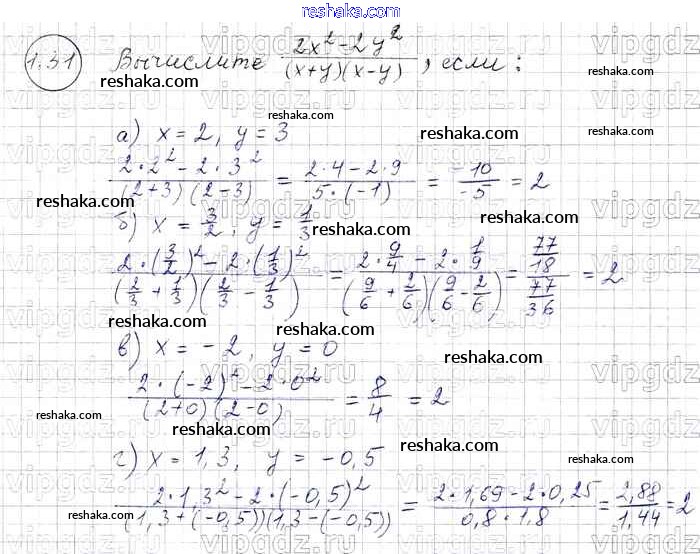 reshaka.com
1.31 Вычислите \frac{2x^2-2y^2}{(x+y)(x-y)}, если:
reshaka.com
reshaka.com
а) x = 2, y = 3
\frac{2·2^2-2·3^2}{(2+3)(2-3)} = \frac{2·4-2·9}{5·(-1)} = \frac{-10}{-5} = 2
reshaka.com reshaka.com reshaka.com
б) x = \frac{3}{2}, y = \frac{1}{3}
reshaka.com
\frac{2·(\frac{3}{2})^2-2·(\frac{1}{3})^2}{(\frac{2}{3}+\frac{1}{3})(\frac{2}{3}-\frac{1}{3})} = \frac{2·\frac{9}{4}-2·\frac{1}{9}}{(\frac{9}{6}+\frac{2}{6})(\frac{9}{6}-\frac{2}{6})} = \frac{\frac{77}{18}}{\frac{77}{36}} = 2
reshaka.com reshaka.com
reshaka.com
в) x = -2, y = 0
reshaka.com
\frac{2·(-2)^2-2·0^2}{(2+0)(2-0)} = \frac{8}{4} = 2
reshaka.com reshaka.com
reshaka.com reshaka.com
г) x = 1,3, y = -0,5
reshaka.com
\frac{2·1,3^2-2·(-0,5)^2}{(1,3+(-0,5))(1,3-(-0,5))} = \frac{2·1,69-2·0,25}{0,8·1,8} = \frac{2,88}{1,44} = 2
reshaka.com reshaka.com reshaka.com
vipgdz.ru